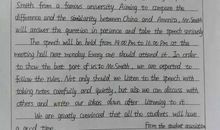 Smith from a famous university. Aiming to compare the
difference and the similarity between China and America, Mr Smith
will answer the question in patience and take the speech sincerely.
The speech will be held from 14:00 Pm to 16:00 Pm at the
meeting hall next Monday. Every one should attend it. In order
to show the best part of us to Mr. Smith, we are expected to
follow the rules. Not only should we listen to the speech with
taking notes carefully and quietly, but also we can discuss with
others and write our ideas down after listening to it.
We are greatly convinced that all the students will have
a good time.
From the student association